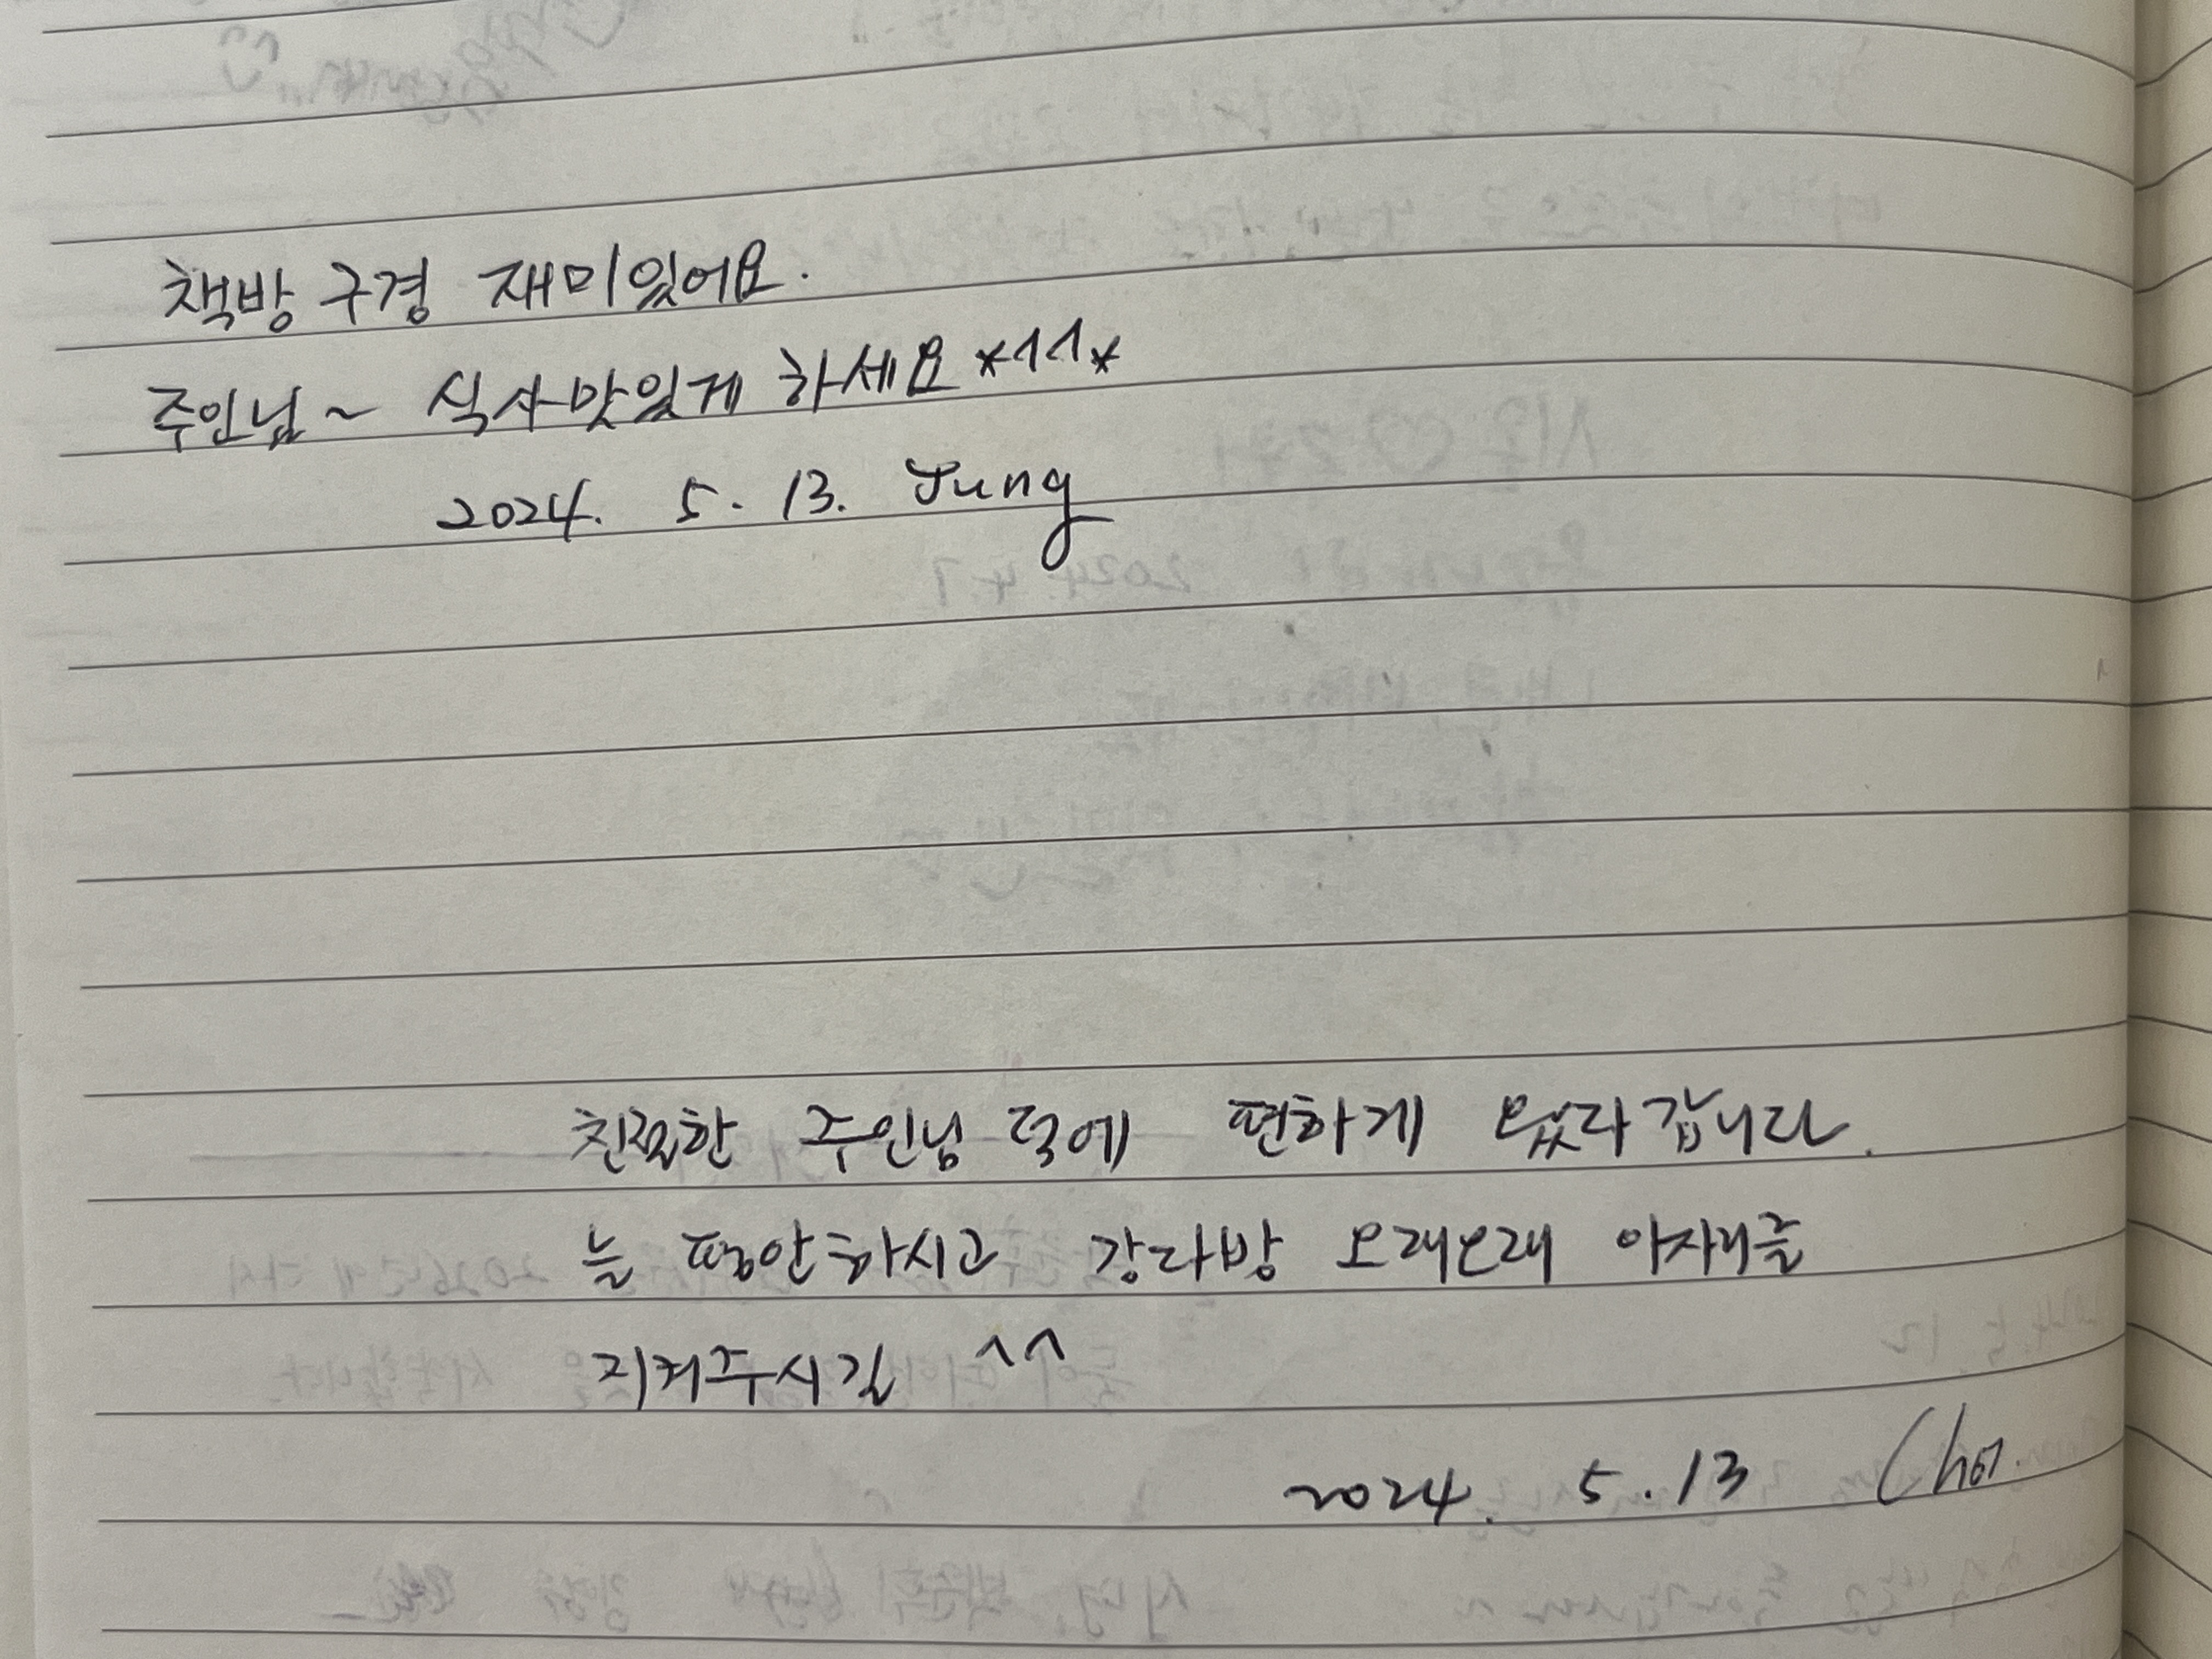 책방 구경 재미있어요.
주인님~ 식사맛있게 하세요 *^^*
2024. 5. 13. Jung
친절한 주인님 덕에 편하게 왔다 갑니다.
늘 평안하시고 강다방 오래오래 이자리를
지켜주시길 ^^
2024. 5. 13 Choi.